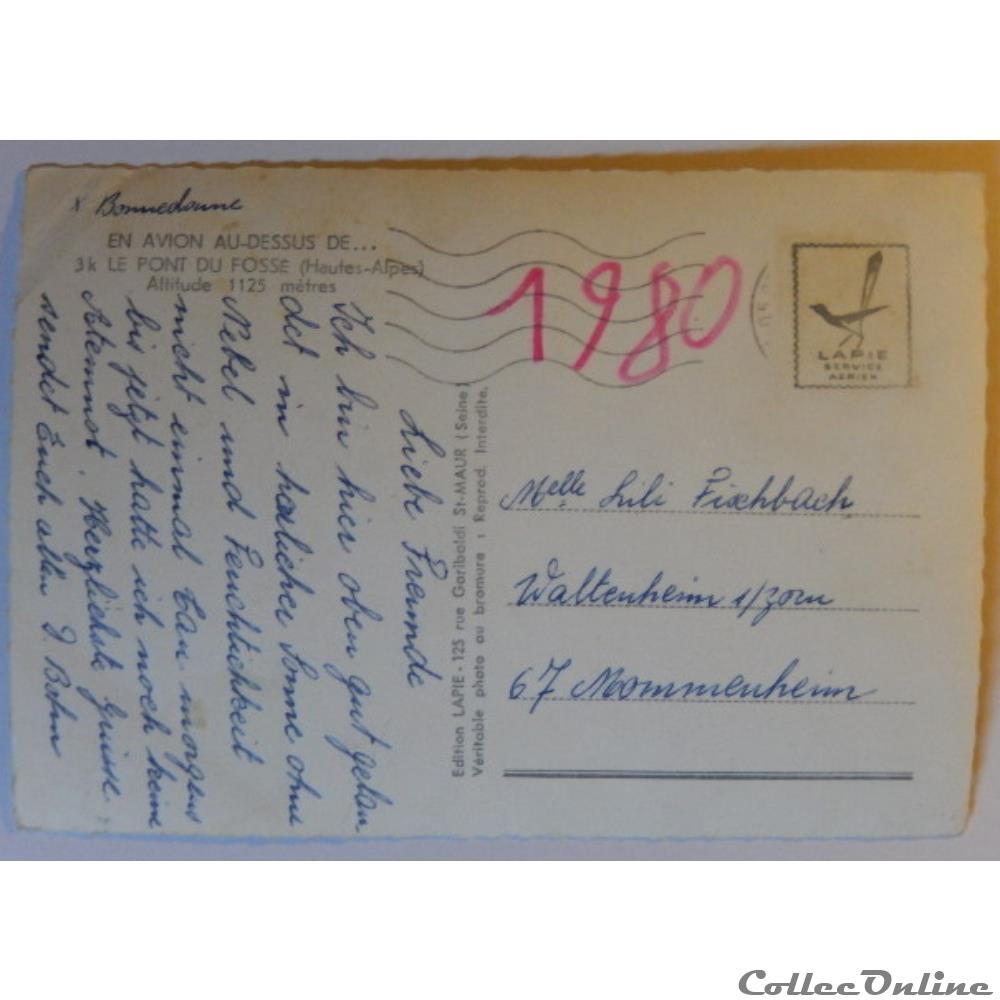 x Bonnedonne
EN AVION AU-DESSUS DE...
3k LE PONT DU FOSSE (Hautes-Alpes)
Altitude 1125 mètres
1980
LAPIE
SERVICE
AERIEN
Liebe Freunde
Ich bin hier oben gut gelan
det in herlicher Sonne ohne
Nebel und Feuchtichkeit
nicht einmal Tau morgens
bis jetzt hatte ich noch keine
Atemnot. Herzlichste Grüsse
sendet Euch allen D. Bohn
Edition LAPIE - 125 rue Garibaldi St-MAUR (Seine)
Véritable photo au bromure : Reprod. Interdite.
Melle Lili Fischbach
Waltenheim s/Zorn
67 Mommenheim
CollecOnline